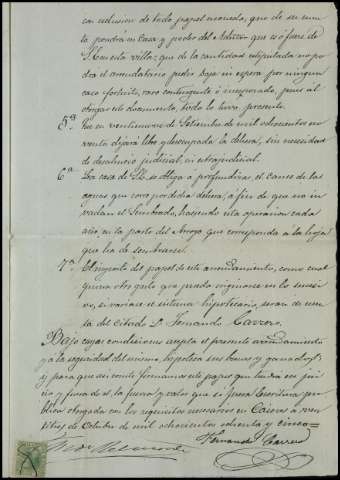 con esclusion de todo papel moneda, que de su cuen
ta pondrá en Casa y poder del Admor que es ó fuere de
S. M. en esta villa; que de la cantidad estipulada no po
drá el arrendatario pedir baja ni espera por ningun
caso fortuito, raso contingente ó inesperado, pues al
otorgar este documento, todo lo tuvo presente.
5ª Que en veintinueve de Setiembre de mil ochocientos no
venta dejará libre y desocupada la dehesa, sin necesidad
de desahucio judicial, ni extrajudicial.
6ª La casa de S. E. se obliga á profundizar el cauce de las
aguas que corre por dicha dehesa, á fin de que no in
vadan el sembrado, haciendo esta operacion cada
año, en la parte del Arroyo que corresponda á la hoja
que ha de sembrarse.
7ª El importe del papel de este arrendamiento, como cual
quiera otro gasto que pueda originarse en lo sucesi
vo, si variase el sistema hipotecario, seran de cuen
ta del citado D. Fernando Carrero.
Bajo cuyas condiciones acepta el presente arrendamiento
y á la seguridad del mismo, hipoteca sus bienes y ganados
y para que asi conste firmamos este papel que tendrá en jui
cio y fuera de él, la fuerza y valor que si fuera Escritura pú
blica otorgada con los requisitos necesarios en Cáceres á vein
titres de Octubre de mil ochocientos ochenta y cinco=
Fernando Carrero